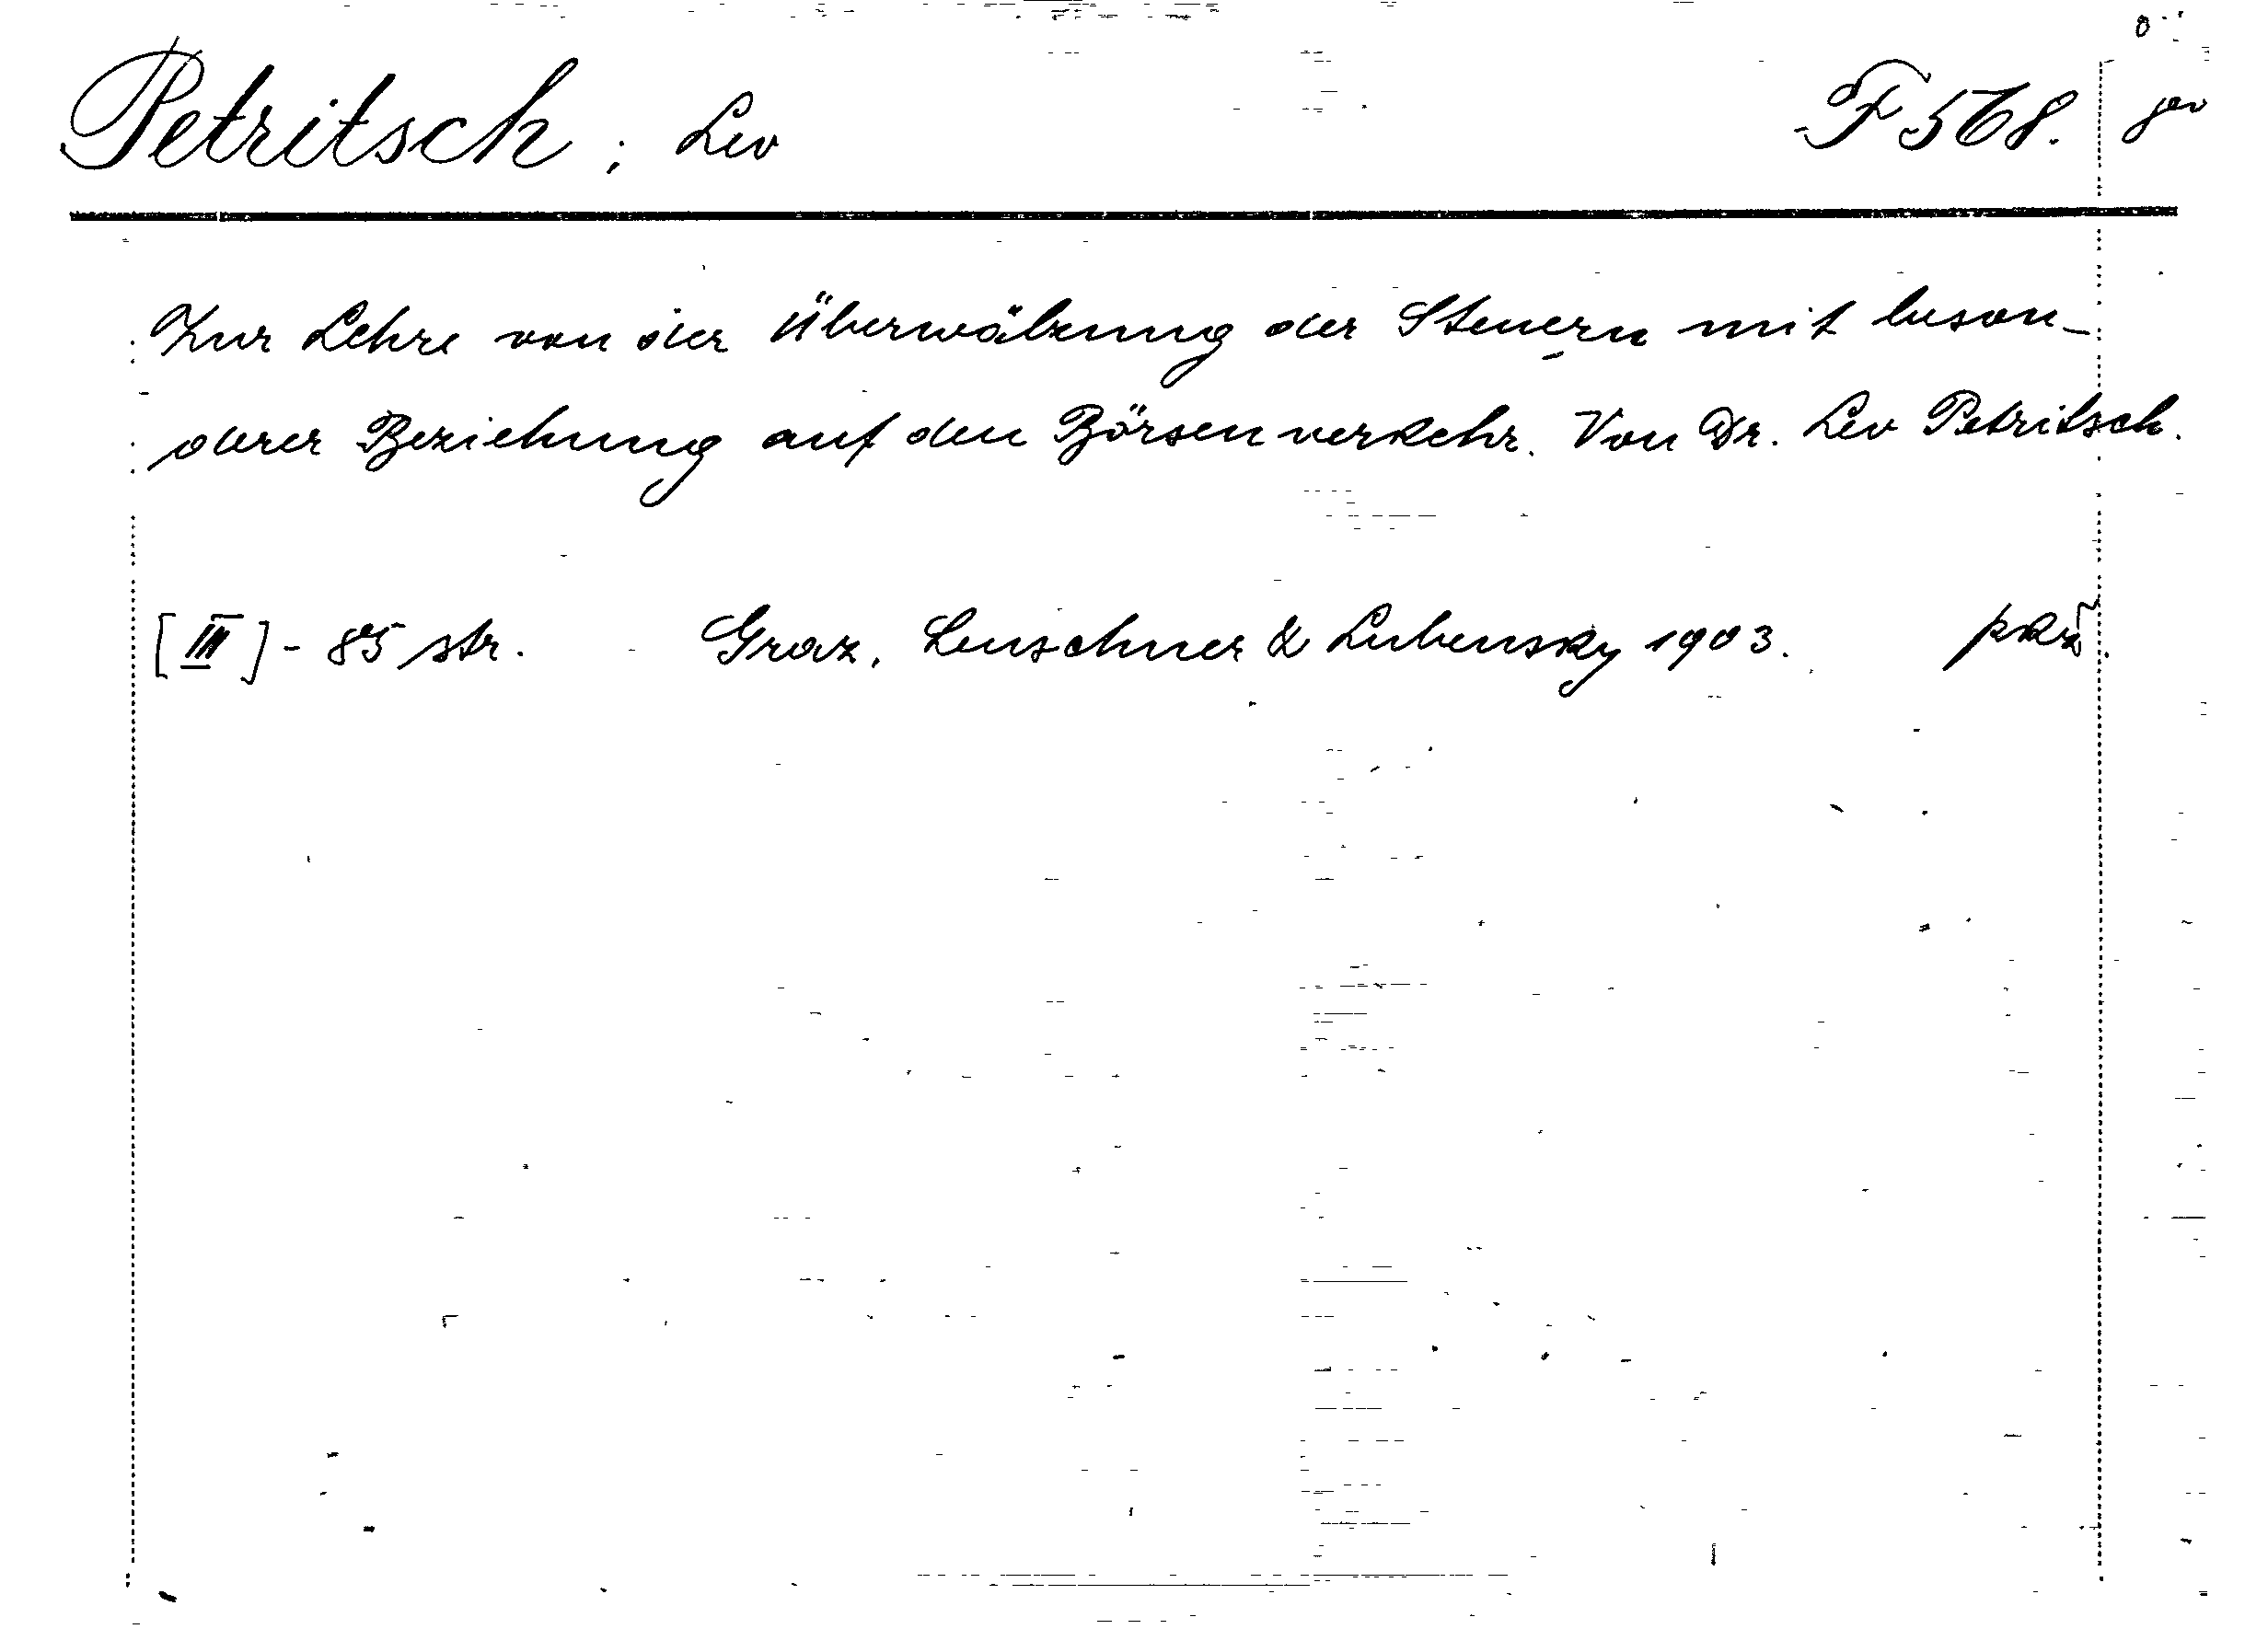 Petritsch; Leo F 568.
Zur Lehre von der Überwälzung der Steuern mit beson-
derer Beziehung auf den Börsenverkehr. Von Dr. Leo Petritsch.
[III] - 85 str. Graz, Leuschner & Lubensky 1903.